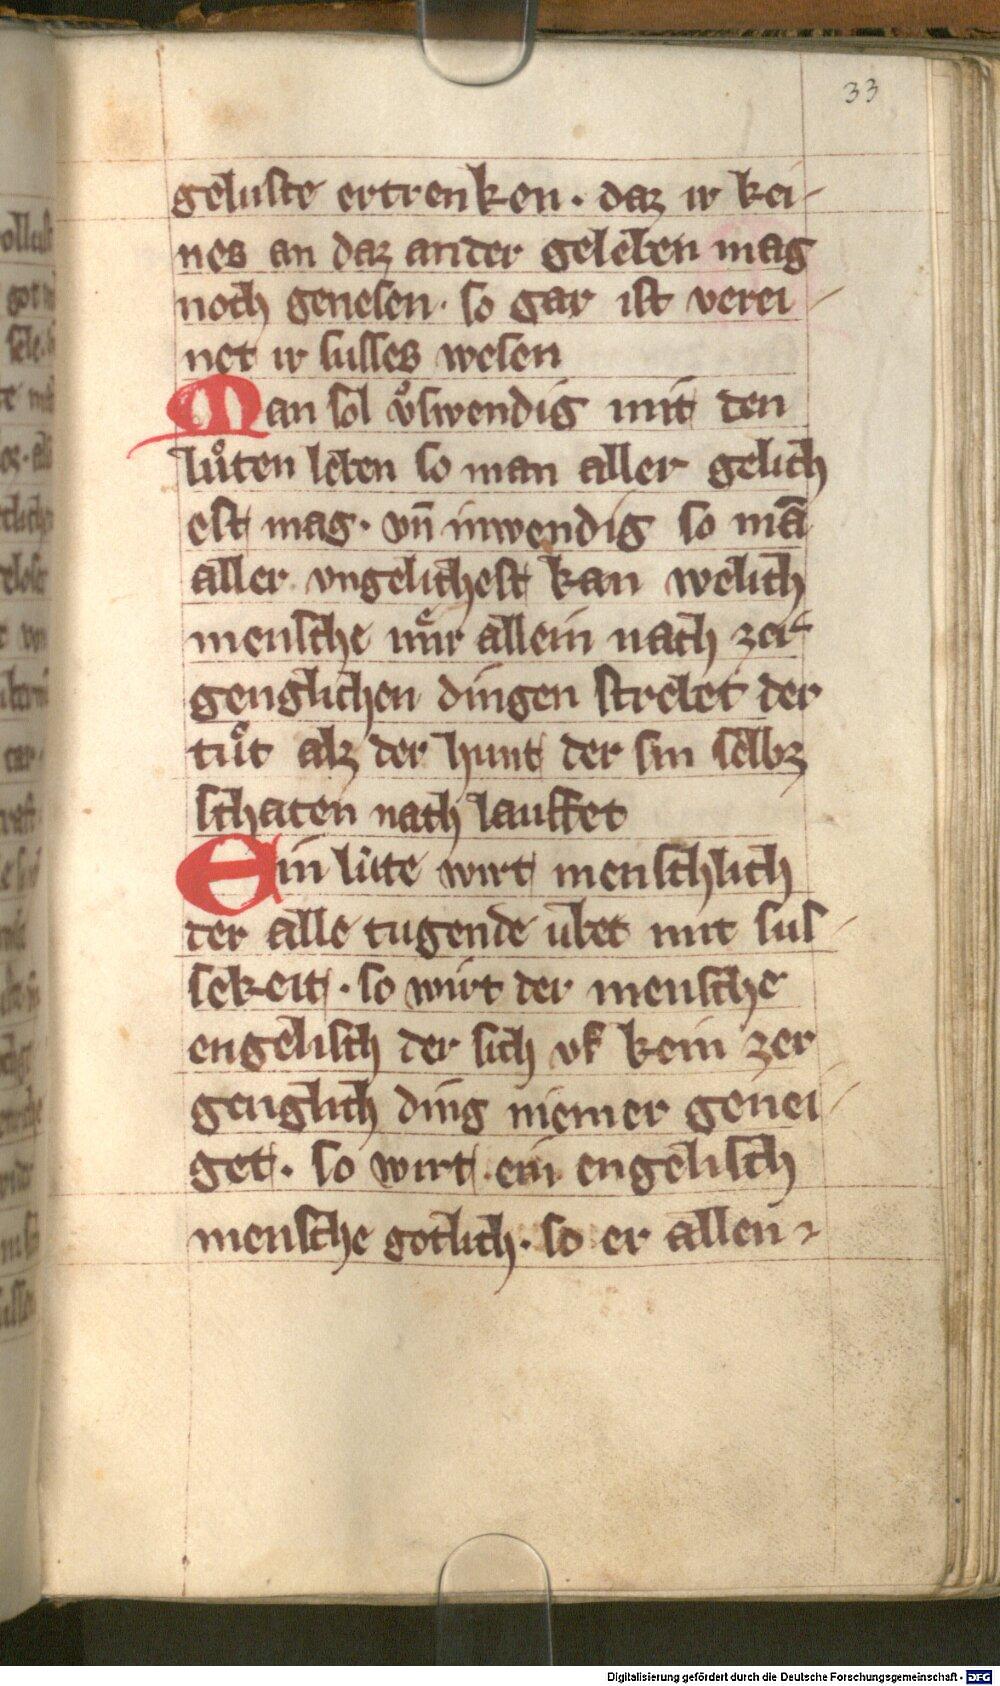 33
geluste ertrenken · daz ir kei-
nes an daz ander geleben mag
noch genesen · so gar ist verei-
net ir susses wesen
Man sol vͦswendig mit den
luͦten leben so man aller gelich
est mag · vn̄ inwendig so mā
aller vngelichest kan welich
mensche nuͤr allein nach zer
genglichen dingen strebet der
tuͦt alz der hunt der sin selbz
schaten nach lauffet
Ein lute wirt menschlich
der alle tugende ubet mit sus-
sekeit · so wirt der mensche
engelisch der sich vf kein zer
genglich ding niemer genei-
get · so wirt ein engelisch
mensche gotlich · so er allen
Digitalisierung gefördert durch die Deutsche Forschungsgemeinschaft - DFG